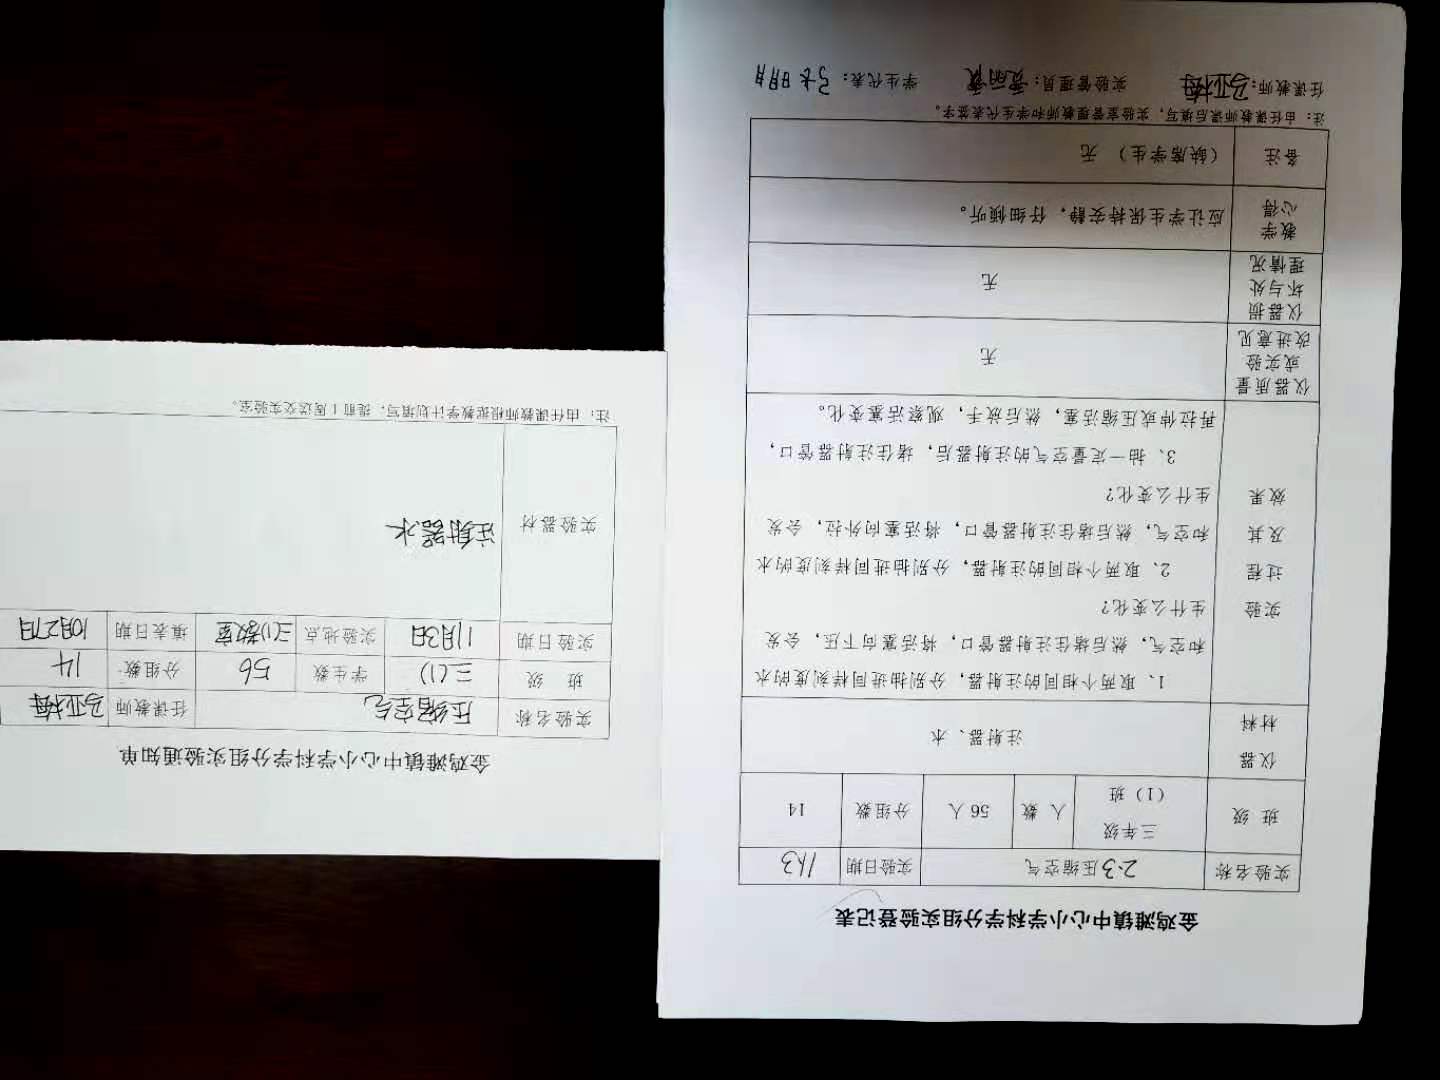 金鸡滩镇中心小学科学分组实验登记表
实验名称 2·3压缩空气 实验日期 11.3
班 级 三年级（1）班 人 数 56人 分组数 14
仪器材料 注射器、水
实验过程及其效果
1、取两个相同的注射器，分别抽进同样刻度的水
和空气，然后堵住注射器管口，将活塞向下压，会发
生什么变化？
2、取两个相同的注射器，分别抽进同样刻度的水
和空气，然后堵住注射器管口，将活塞向外拉，会发
生什么变化？
3、抽一定量空气的注射器后，堵住注射器管口，
再拉伸或压缩活塞，然后放手，观察活塞变化。
仪器质量或实验改进意见 无
仪器损坏与处理情况 无
教学心得 应让学生保持安静，仔细倾听。
备注 （缺席学生） 无
注：由任课教师课后填写，实验室管理教师和学生代表签字。
任课教师：马亚梅 实验管理员： 学生代表：
金鸡滩镇中心小学科学学科分组实验通知单
实验名称 压缩空气 任课教师 马亚梅
班 级 三(1) 学生数 56 分组数 14
实验日期 11月3日 实验地点 三(1)教室 填表日期 10月27日
实验器材 注射器水
注：由任课教师根据教学计划填写，提前1周送交实验室。